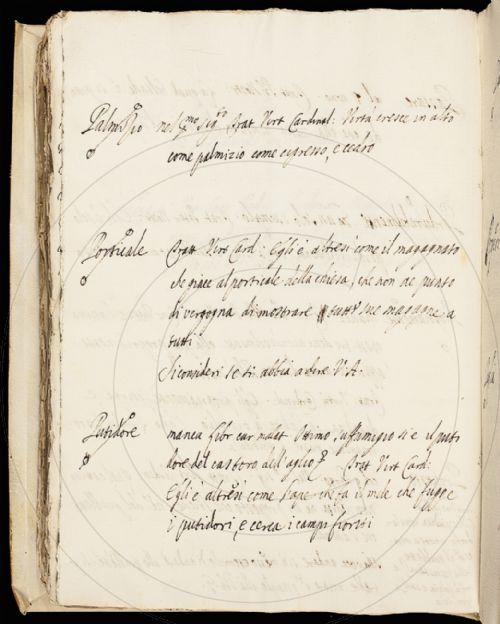 Palmizio nel Trat Virt Cardinal: Virtu cresce in alto
come palmizio come cipresso, e cedro
Porticale Tratt Virt Card: Egli è altresi come il magagnato
che giace al porticale della chiesa, che non ae punto
di vergogna di mostrare tutte sue magagne a
tutti
Si consideri se si abbia a dere V. A.
Putidore manca libr cur malat Ottimo suffumigio si è il puti
dore del castoro dell'aglio Trat Virt Card:
Egli è altresi come l'ape che fa il mele che fugge
i putidori, e cerca i campi fioriti